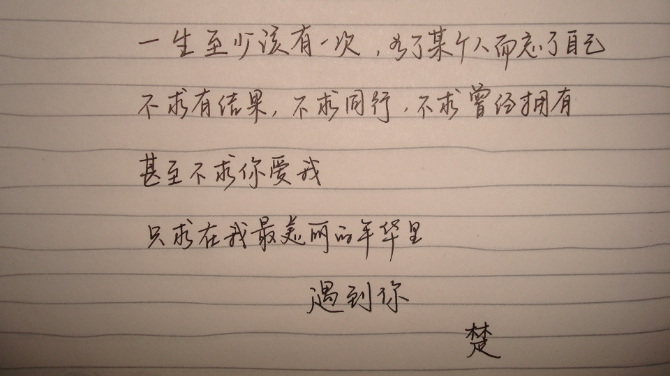 一生至少该有一次，为了某个人而忘了自己
不求有结果，不求同行，不求曾经拥有
甚至不求你爱我
只求在我最美丽的年华里
遇到你
楚